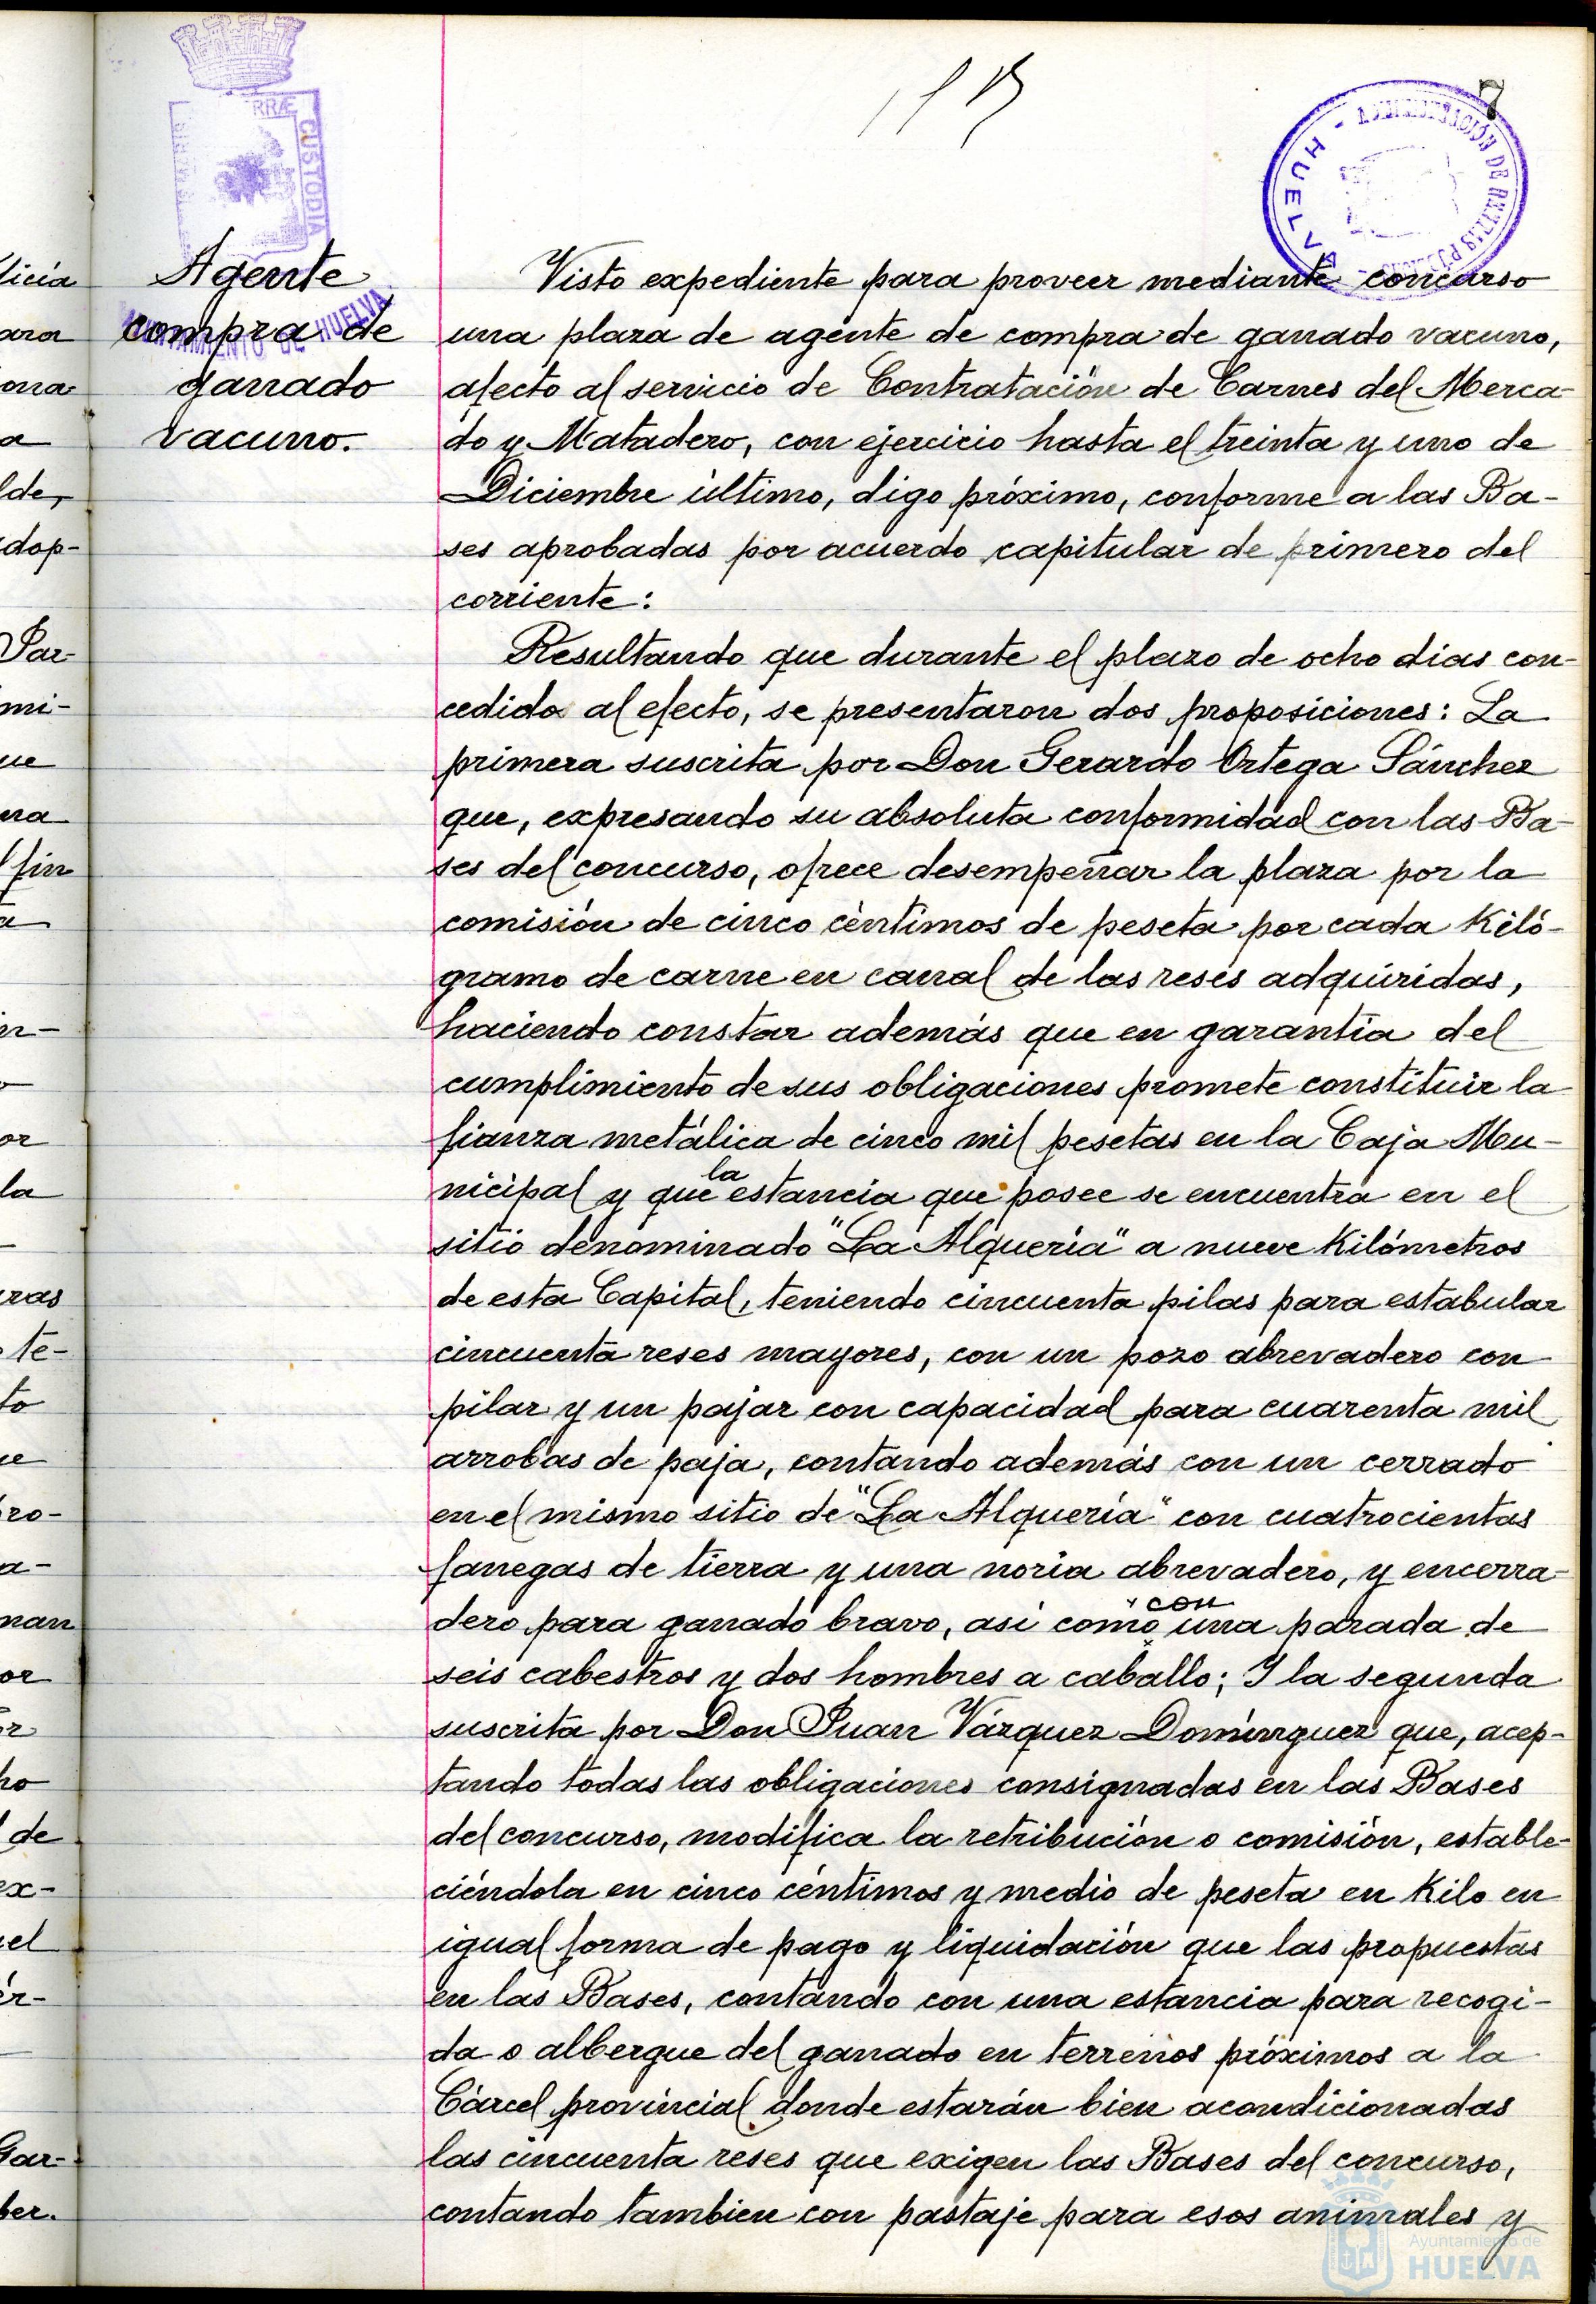 7
RRÆ
CUSTODIA
AYUNTAMIENTO DE HUELVA
HUELVA
Agente
compra de
ganado
vacuno.
Visto expediente para proveer mediante concurso
una plaza de agente de compra de ganado vacuno,
afecto al servicio de Contratación de Carnes del Merca-
do y Matadero, con ejercicio hasta el treinta y uno de
Diciembre último, digo próximo, conforme a las Ba-
ses aprobadas por acuerdo capitular de primero del
corriente:
Resultando que durante el plazo de ocho dias con-
cedido al efecto, se presentaron dos proposiciones: La
primera suscrita por Don Gerardo Ortega Sánchez
que, expresando su absoluta conformidad con las Ba-
ses del concurso, ofrece desempeñar la plaza por la
comisión de cinco céntimos de peseta por cada Kiló-
gramo de carne en canal de las reses adquiridas,
haciendo constar además que en garantía del
cumplimiento de sus obligaciones promete constituir la
fianza metálica de cinco mil pesetas en la Caja Mu-
nicipal y que la estancia que posee se encuentra en el
sitio denominado "La Alquería" a nueve Kilómetros
de esta Capital, teniendo cincuenta pilas para estabular
cincuenta reses mayores, con un pozo abrevadero con
pilar y un pajar con capacidad para cuarenta mil
arrobas de paja, contando además con un cerrado
en el mismo sitio de "La Alquería" con cuatrocientas
fanegas de tierra y una noria abrevadero, y encerra-
dero para ganado bravo, asi como con una parada de
seis cabestros y dos hombres a caballo; Y la segunda
suscrita por Don Juan Vázquez Domínguez que, acep-
tando todas las obligaciones consignadas en las Bases
del concurso, modifica la retribución o comisión, estable-
ciéndola en cinco céntimos y medio de peseta en Kilo en
igual forma de pago y liquidación que las propuestas
en las Bases, contando con una estancia para recogi-
da o albergue del ganado en terrenos próximos a la
Cárcel provincial donde estarán bien acondicionadas
las cincuenta reses que exigen las Bases del concurso,
contando tambien con pastaje para esos animales y
Ayuntamiento de
HUELVA